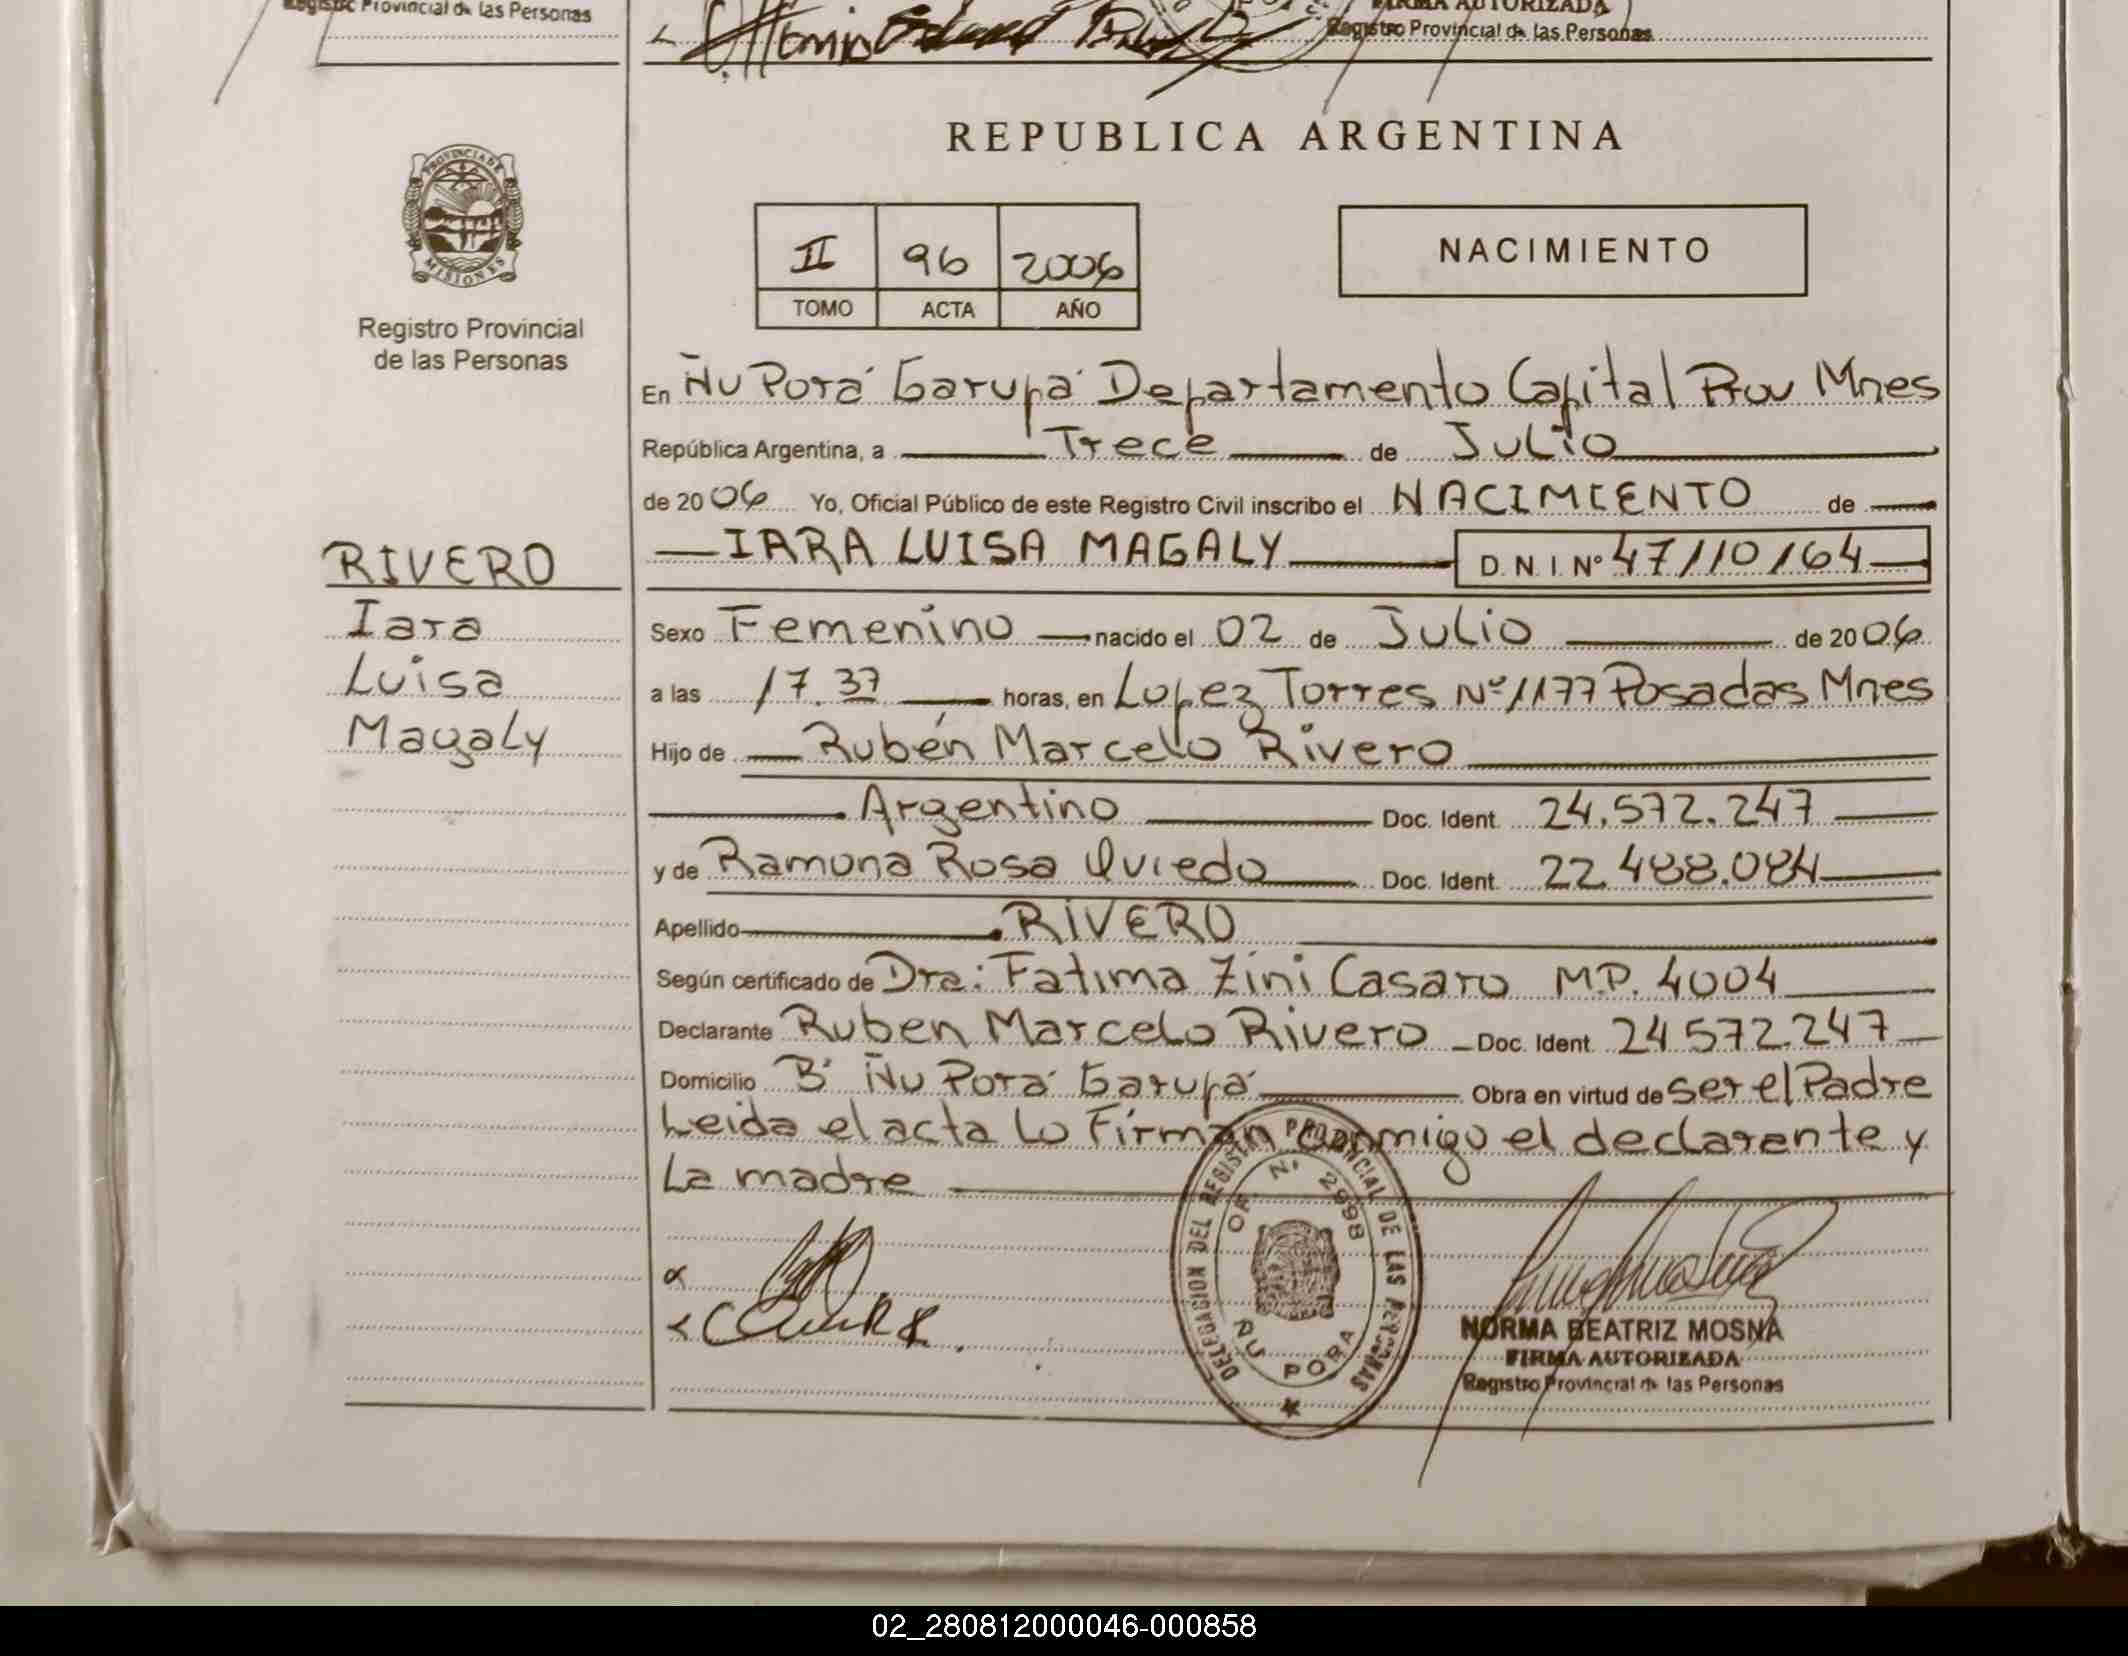 Registro Provincial de las Personas
FIRMA AUTORIZADA
Registro Provincial de las Personas
PROVINCIA DE
MISIONES
Registro Provincial
de las Personas
REPUBLICA ARGENTINA
II 96 2006
TOMO ACTA AÑO
NACIMIENTO
En Ñu Porá Garupá Departamento Capital Prov Mnes
República Argentina, a Trece de Julio
de 2006 Yo, Oficial Público de este Registro Civil inscribo el NACIMIENTO de
IARA LUISA MAGALY D.N.I. Nº 47110164
RIVERO
Iara
Luisa
Magaly
Sexo Femenino nacido el 02 de Julio de 2006
a las 17.37 horas, en Lopez Torres Nº 1177 Posadas Mnes
Hijo de Rubén Marcelo Rivero
Argentino Doc. Ident. 24.572.247
y de Ramona Rosa Oviedo Doc. Ident. 22.488.084
Apellido RIVERO
Según certificado de Dra: Fatima Zini Casaro M.P. 4004
Declarante Ruben Marcelo Rivero Doc. Ident. 24.572.247
Domicilio Bº Ñu Porá Garupá Obra en virtud de ser el Padre
Leida el acta Lo Firman Conmigo el declarante y
La madre
DELEGACION DEL REGISTRO PROVINCIAL DE LAS PERSONAS
OF. N. 2998
ÑU PORA
NORMA BEATRIZ MOSNA
FIRMA AUTORIZADA
Registro Provincial de las Personas
02_280812000046-000858